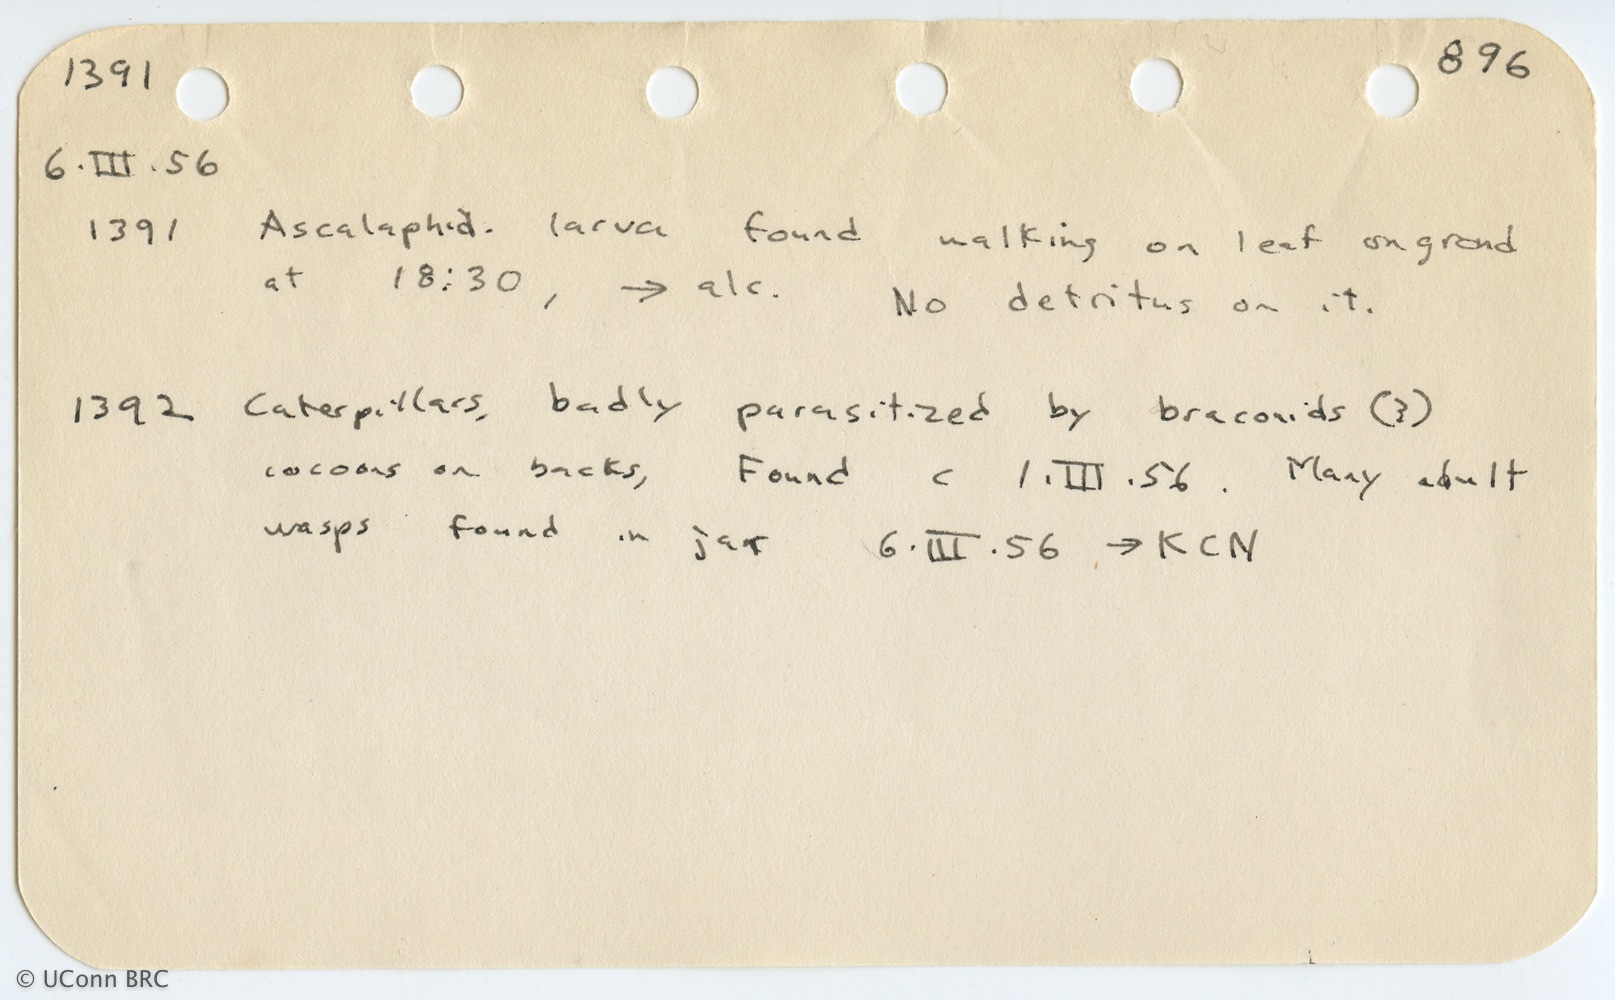 1391 896
6.III.56
1391 Ascalaphid. larva found walking on leaf on grond
at 18:30, → alc. No detritus on it.
1392 Caterpillars, badly parasitized by braconids (?)
cocoons on backs, Found c 1.III.56. Many adult
wasps found in jar 6.III.56 → KCN
© UConn BRC